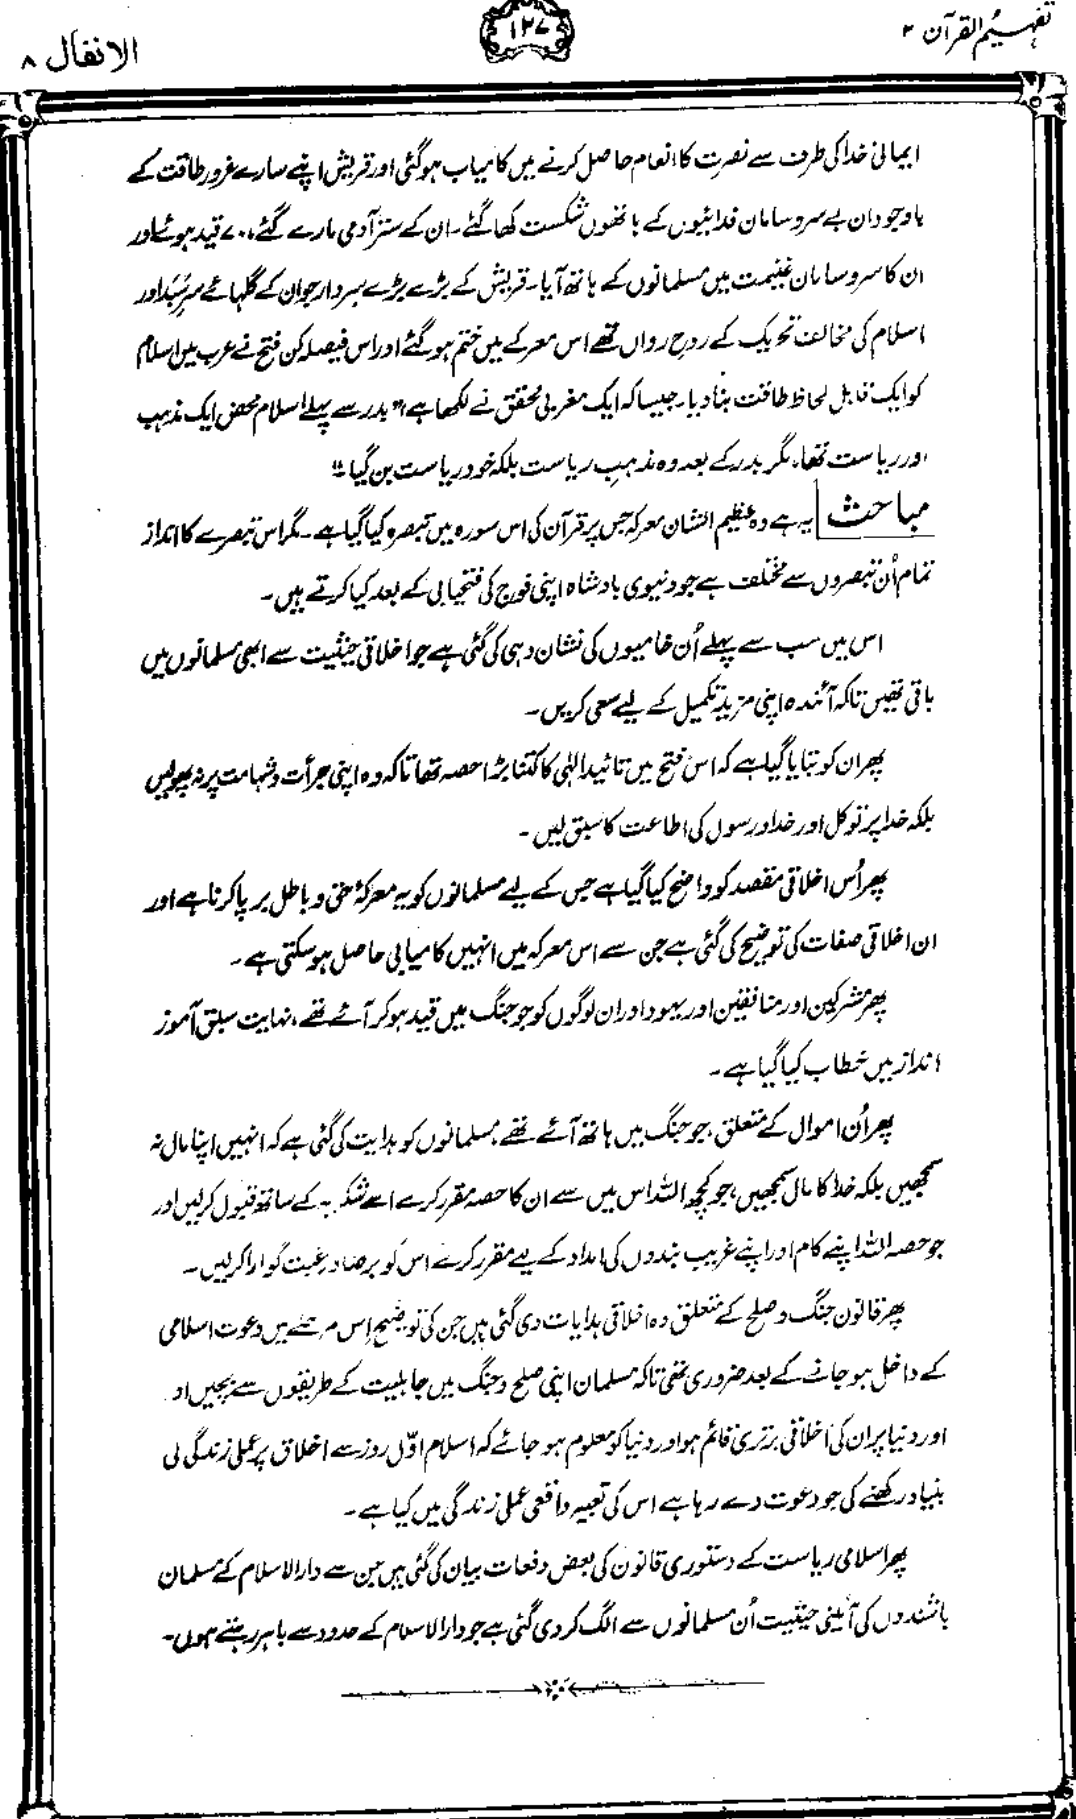 تفہیم القرآن ۲
۱۲۷
الانفال ۸
ایمانی خدا کی طرف سے نصرت کا انعام حاصل کرنے میں کامیاب ہو گئی اور قریش اپنے سارے غرور طاقت کے
باوجود ان بے سروسامان فدائیوں کے ہاتھوں شکست کھا گئے۔ ان کے ستر آدمی مارے گئے، ۷۰ قید ہوئے اور
ان کا سروسامان غنیمت میں مسلمانوں کے ہاتھ آیا۔ قریش کے بڑے بڑے سردار جو ان کے گلہائے سرسَبَد اور
اسلام کی مخالف تحریک کے روحِ رواں تھے اس معرکے میں ختم ہو گئے اور اس فیصلہ کن فتح نے عرب میں اسلام
کو ایک قابل لحاظ طاقت بنا دیا۔ جیسا کہ ایک مغربی محقق نے لکھا ہے، ”بدر سے پہلے اسلام محض ایک مذہب
اور ریاست تھا، مگر بدر کے بعد وہ مذہبِ ریاست بلکہ خود ریاست بن گیا“
مباحث یہ ہے وہ عظیم الشان معرکہ جس پر قرآن کی اس سورہ میں تبصرہ کیا گیا ہے۔ مگر اس تبصرے کا انداز
تمام اُن تبصروں سے مختلف ہے جو دنیوی بادشاہ اپنی فوج کی فتحیابی کے بعد کیا کرتے ہیں۔
اس میں سب سے پہلے اُن خامیوں کی نشان دہی کی گئی ہے جو اخلاقی حیثیت سے ابھی مسلمانوں میں
باقی تھیں تاکہ آئندہ اپنی مزید تکمیل کے لیے سعی کریں۔
پھر ان کو بتایا گیا ہے کہ اس فتح میں تائید الٰہی کا کتنا بڑا حصہ تھا تاکہ وہ اپنی جرأت و شہامت پر نہ پھولیں
بلکہ خدا پر توکل اور خدا و رسول کی اطاعت کا سبق لیں۔
پھر اُس اخلاقی مقصد کو واضح کیا گیا ہے جس کے لیے مسلمانوں کو یہ معرکۂ حق و باطل برپا کرنا ہے اور
ان اخلاقی صفات کی توضیح کی گئی ہے جن سے اس معرکہ میں انہیں کامیابی حاصل ہو سکتی ہے۔
پھر مشرکین اور منافقین اور یہود اور ان لوگوں کو جو جنگ میں قید ہو کر آئے تھے، نہایت سبق آموز
انداز میں خطاب کیا گیا ہے۔
پھر اُن اموال کے متعلق، جو جنگ میں ہاتھ آئے تھے، مسلمانوں کو ہدایت کی گئی ہے کہ انہیں اپنا مال نہ
سمجھیں بلکہ خدا کا مال سمجھیں، جو کچھ اللہ اس میں سے ان کا حصہ مقرر کرے اسے شکریہ کے ساتھ قبول کر لیں اور
جو حصہ اللہ اپنے کام اور اپنے غریب بندوں کی امداد کے لیے مقرر کرے اس کو برضا و رغبت گوارا کر لیں۔
پھر قانون جنگ و صلح کے متعلق وہ اخلاقی ہدایات دی گئی ہیں جن کی توضیح اِس مرحلے میں دعوت اسلامی
کے داخل ہو جانے کے بعد ضروری تھی تاکہ مسلمان اپنی صلح و جنگ میں جاہلیت کے طریقوں سے بچیں او
اور دنیا پر ان کی اخلاقی برتری قائم ہو اور دنیا کو معلوم ہو جائے کہ اسلام اوّل روز سے اخلاق پر عملی زندگی کی
بنیاد رکھنے کی جو دعوت دے رہا ہے اس کی تعبیر واقعی عملی زندگی میں کیا ہے۔
پھر اسلامی ریاست کے دستوری قانون کی بعض دفعات بیان کی گئی ہیں جن سے دارالاسلام کے مسلمان
باشندوں کی آئینی حیثیت اُن مسلمانوں سے الگ کر دی گئی ہے جو دارالاسلام کے حدود سے باہر رہتے ہوں۔